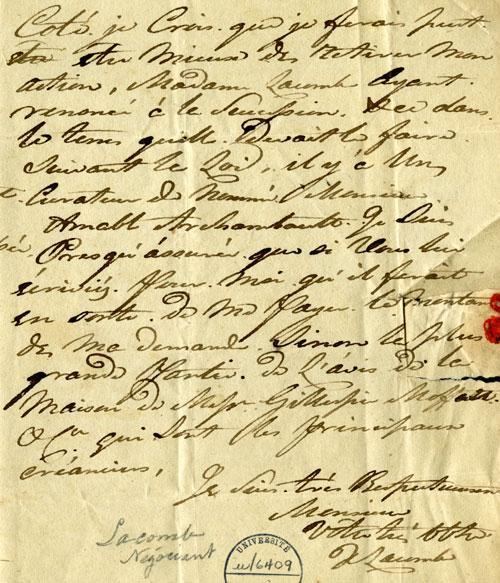 Coté. je Crois. que je ferais peut
etre Mieux des Retirer Mon
action, Madame Lacombe Ayant.
renoncé à la Succession. dans
le tems quelle Devait le faire.
Suivant la Loi, il y à Un
Curateur de Nommé Monsieur
Amable Archambault. Je Suis
Presqu'assuré que si Vous lui
écriviéz. Pour. Moi qu'il ferait
en sorte. de Me Payer. le Montan
des Ma demande. Sinon le plus
grande Partie. de L'avis de la
Maison de Messr. Gillespie Moffatt.
& Co. qui Sont les Principaux
Créanciers,
Je Suis. très Respectueusem
Monsieur
Votre trè Obt
Lacombe
Lacombe
Négociant
UNIVERSITÉ
u/6409